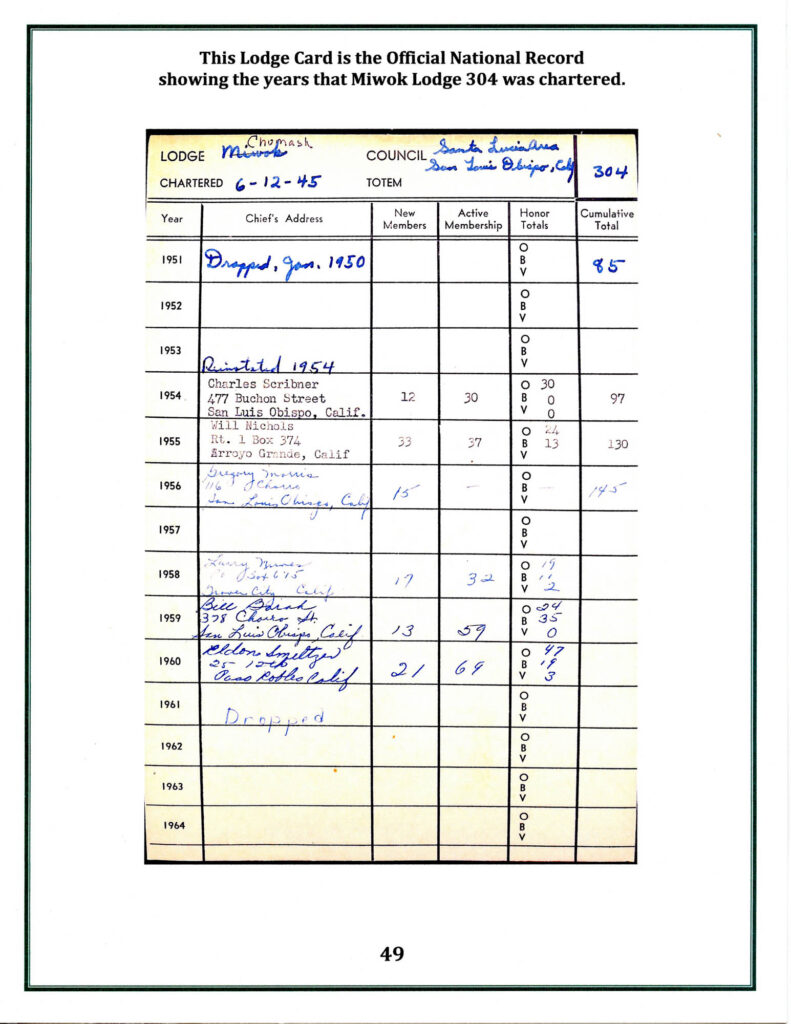 This Lodge Card is the Official National Record
showing the years that Miwok Lodge 304 was chartered.
Chumash
LODGE Miwok COUNCIL Santa Lucia Area
San Louis Obispo, Calif 304
CHARTERED 6-12-45 TOTEM
Year Chief's Address New Members Active Membership Honor Totals Cumulative Total
1951 Dropped, Jan. 1950 O B V 85
1952 O B V
1953 O B V
Reinstated 1954
Charles Scribner O 30
1954 477 Buchon Street 12 30 B 0 97
San Luis Obispo, Calif. V 0
Will Nichols O 24
1955 Rt. 1 Box 374 33 37 B 13 130
Arroyo Grande, Calif V
Gregory Morris O
1956 Chorro 15 — B — 145
San Louis Obispo, Calif V
1957 O B V
Larry O 19
1958 Box 17 32 B 11
Grover City Calif V 2
Bill O 24
1959 378 Chorro St. 13 59 B 35
San Luis Obispo, Calif V 0
Eldon Smeltzer O 47
1960 25 12th 21 69 B 19
Paso Robles Calif V 3
1961 Dropped O B V
1962 O B V
1963 O B V
1964 O B V
49